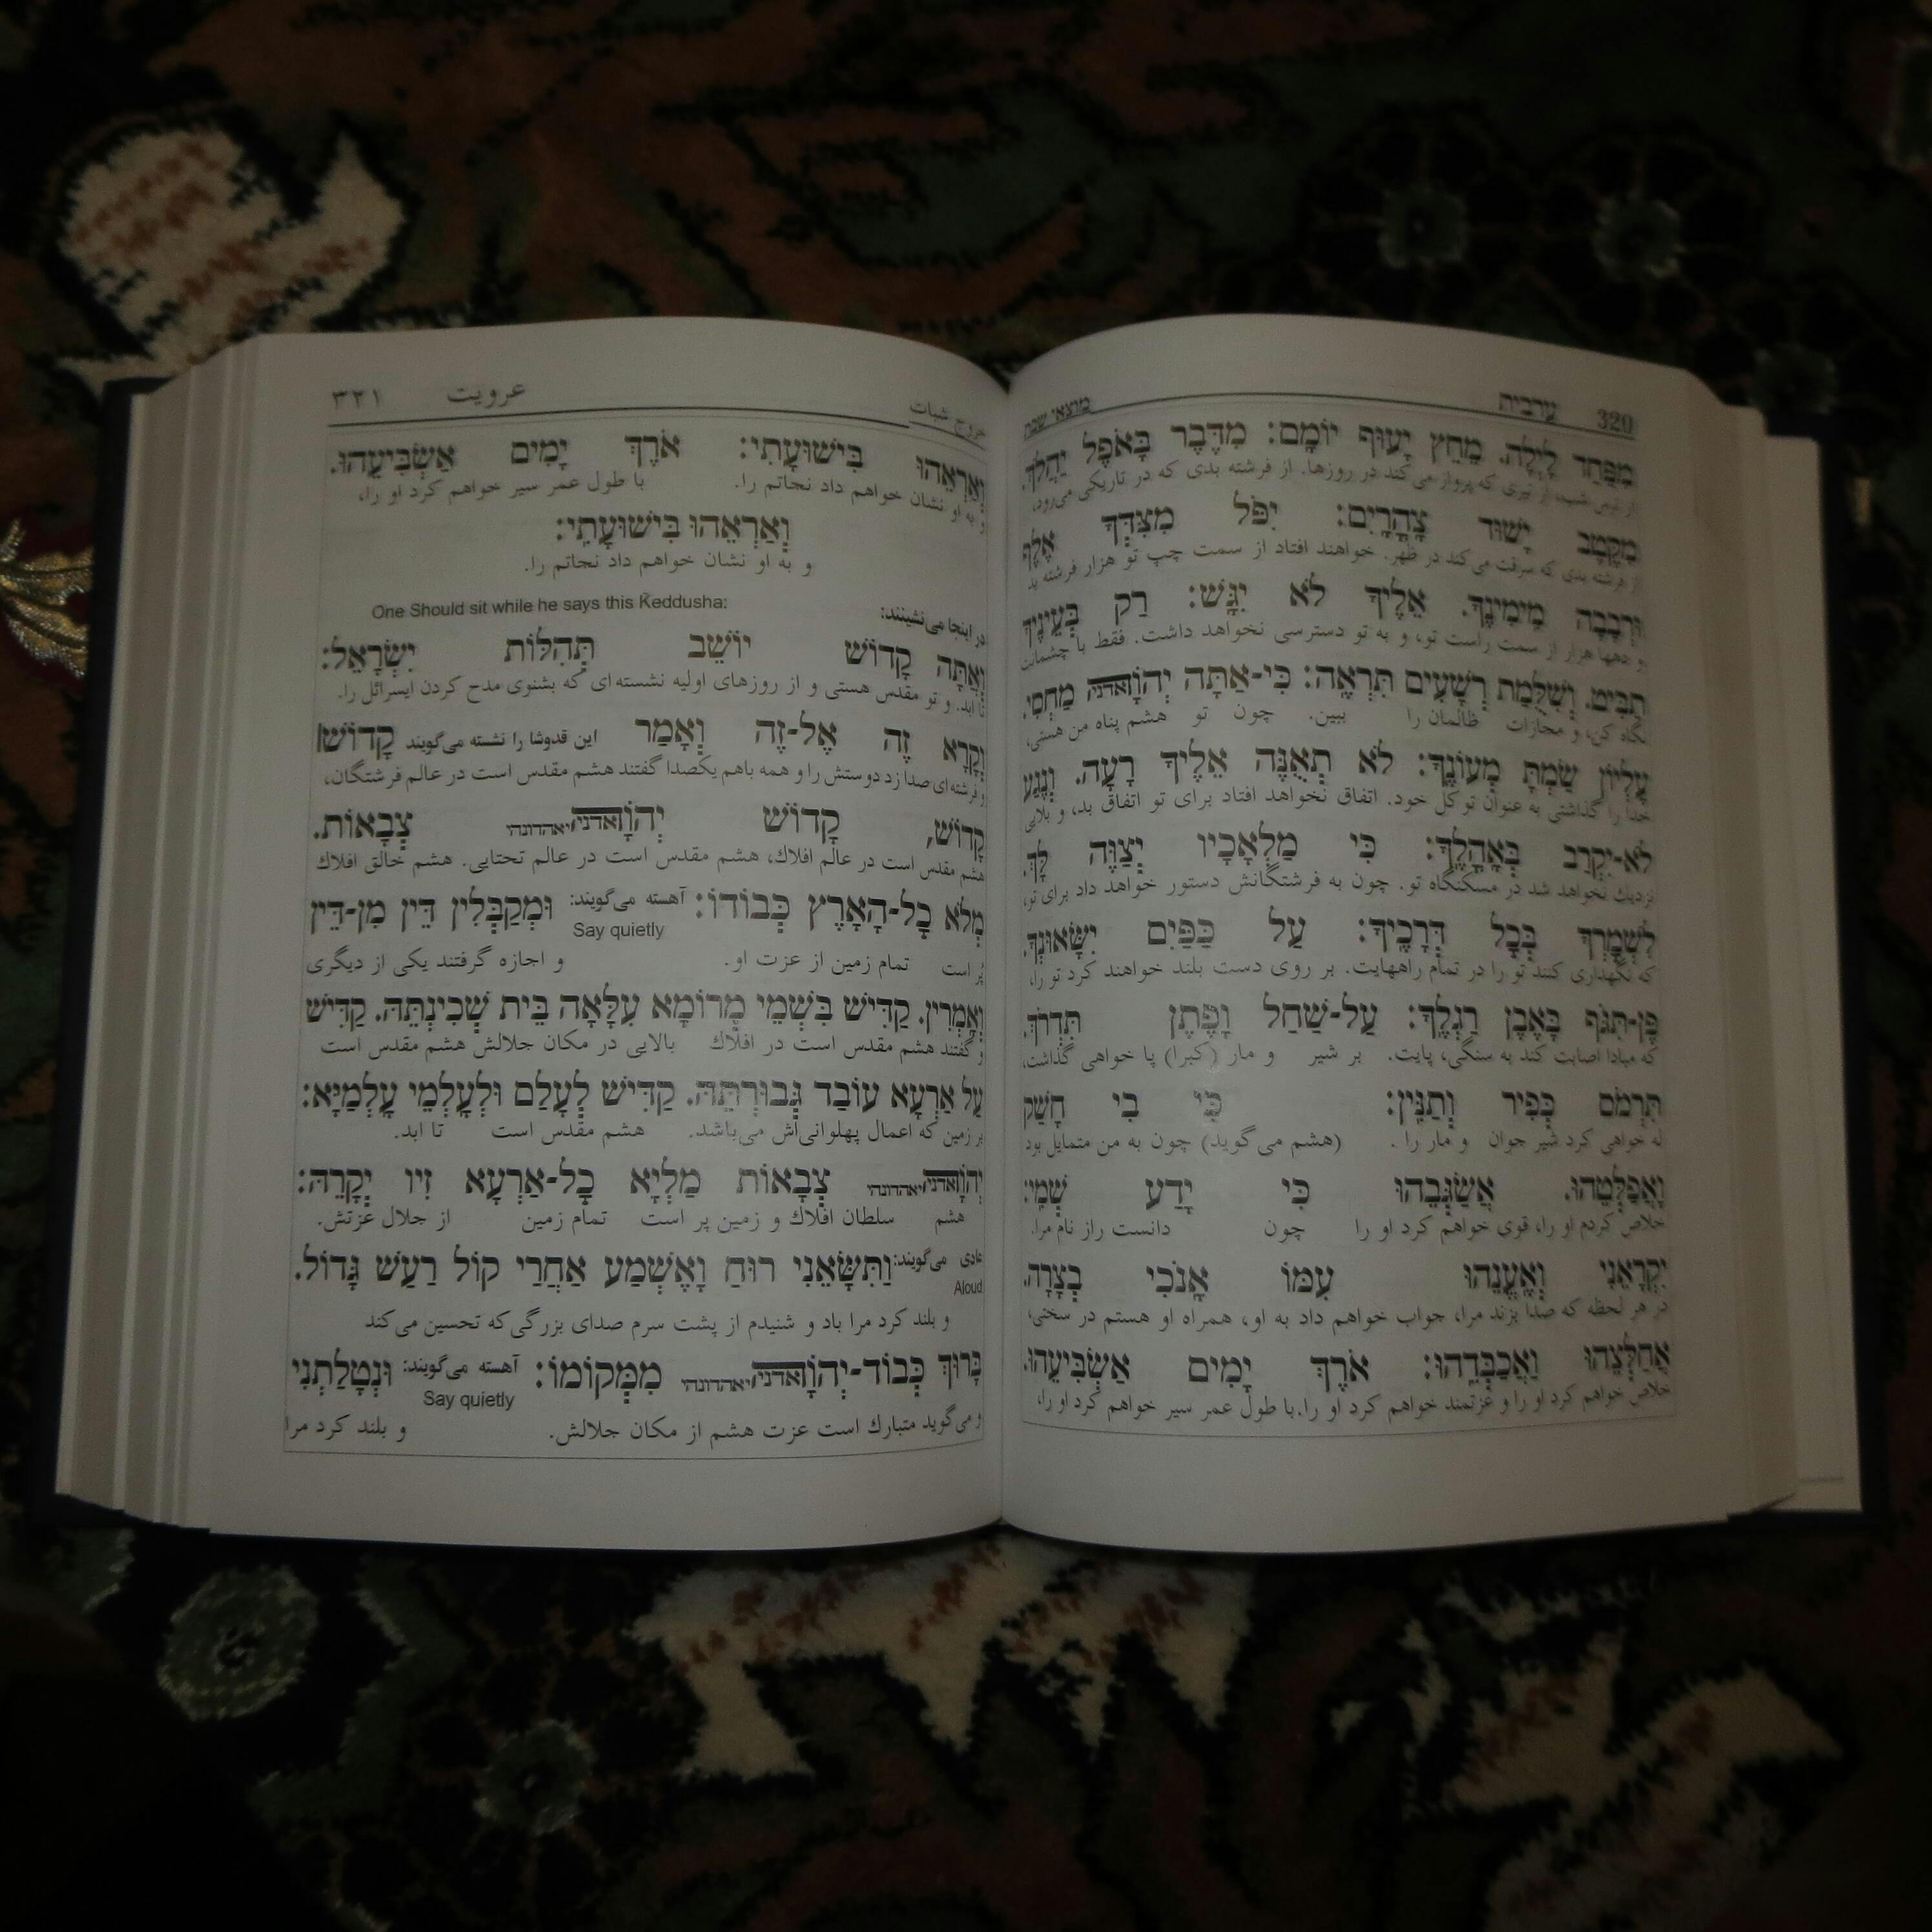 320 ערבית מוצאי שבת
מִפַּחַד לָיְלָה. מֵחֵץ יָעוּף יוֹמָם: מִדֶּבֶר בָּאֹפֶל יַהֲלֹךְ.
از ترس شب، از تیری که پرواز می‌کند در روزها. از فرشته بدی که در تاریکی می‌رود،
מִקֶּטֶב יָשׁוּד צָהֳרָיִם: יִפֹּל מִצִּדְּךָ אֶלֶף
از فرشته بدی که سرقت می‌کند در ظهر. خواهند افتاد از سمت چپ تو هزار فرشته بد
וּרְבָבָה מִימִינֶךָ. אֵלֶיךָ לֹא יִגָּשׁ: רַק בְּעֵינֶיךָ
و دهها هزار از سمت راست تو، و به تو دسترسی نخواهد داشت. فقط با چشمانت
תַבִּיט. וְשִׁלֻּמַת רְשָׁעִים תִּרְאֶה: כִּי-אַתָּה יְהֹוָהאדני מַחְסִי.
نگاه کن، و مجازات ظالمان را ببین. چون تو هشم پناه من هستی،
עֶלְיוֹן שַׂמְתָּ מְעוֹנֶךָ: לֹא תְאֻנֶּה אֵלֶיךָ רָעָה. וְנֶגַע
خدا را گذاشتی به عنوان توکل خود. اتفاق نخواهد افتاد برای تو اتفاق بد، و بلایی
לֹא-יִקְרַב בְּאָהֳלֶךָ: כִּי מַלְאָכָיו יְצַוֶּה לָּךְ.
نزدیك نخواهد شد در مسکنگاه تو. چون به فرشتگانش دستور خواهد داد برای تو،
לִשְׁמָרְךָ בְּכָל דְּרָכֶיךָ: עַל כַּפַּיִם יִשָּׂאוּנְךָ.
که نگهداری کنند تو را در تمام راههایت. بر روی دست بلند خواهند کرد تو را،
פֶּן-תִּגֹּף בָּאֶבֶן רַגְלֶךָ: עַל-שַׁחַל וָפֶתֶן תִּדְרֹךְ.
که مبادا اصابت کند به سنگی، پایت. بر شیر و مار (کبرا) پا خواهی گذاشت،
תִּרְמֹס כְּפִיר וְתַנִּין: כִּי בִי חָשַׁק
له خواهی کرد شیر جوان و مار را . (هشم می‌گوید) چون به من متمایل بود
וַאֲפַלְּטֵהוּ. אֲשַׂגְּבֵהוּ כִּי יָדַע שְׁמִי:
خلاص کردم او را، قوی خواهم کرد او را چون دانست راز نام مرا.
יִקְרָאֵנִי וְאֶעֱנֵהוּ עִמּוֹ אָנֹכִי בְצָרָה.
در هر لحظه که صدا بزند مرا، جواب خواهم داد به او، همراه او هستم در سختی،
אֲחַלְּצֵהוּ וַאֲכַבְּדֵהוּ: אֹרֶךְ יָמִים אַשְׂבִּיעֵהוּ.
خلاص خواهم کرد او را و عزتمند خواهم کرد او را. با طول عمر سیر خواهم کرد او را،
خروج شبات عرویت ۳۲۱
וְאַרְאֵהוּ בִּישׁוּעָתִי: אֹרֶךְ יָמִים אַשְׂבִּיעֵהוּ.
و به او نشان خواهم داد نجاتم را. با طول عمر سیر خواهم کرد او را،
וְאַרְאֵהוּ בִּישׁוּעָתִי:
و به او نشان خواهم داد نجاتم را.
در اینجا می‌نشینند: One Should sit while he says this Keddusha:
וְאַתָּה קָדוֹשׁ יוֹשֵׁב תְּהִלּוֹת יִשְׂרָאֵל:
تا ابد. و تو مقدس هستی و از روزهای اولیه نشسته ای که بشنوی مدح کردن ایسرائل را.
וְקָרָא זֶה אֶל-זֶה וְאָמַר این قدوشا را نشسته می‌گویند קָדוֹשׁ
و فرشته‌ای صدا زد دوستش را و همه باهم یکصدا گفتند هشم مقدس است در عالم فرشتگان،
קָדוֹשׁ, קָדוֹשׁ יְהֹוָהאדני יאהדונהי צְבָאוֹת.
هشم مقدس است در عالم افلاك، هشم مقدس است در عالم تحتایی. هشم خالق افلاك
מְלֹא כָל-הָאָרֶץ כְּבוֹדוֹ: آهسته می‌گویند: וּמְקַבְּלִין דֵּין מִן-דֵּין
Say quietly
پر است تمام زمین از عزت او. و اجازه گرفتند یکی از دیگری
וְאָמְרִין. קַדִּישׁ בִּשְׁמֵי מְרוֹמָא עִלָּאָה בֵּית שְׁכִינְתֵּהּ. קַדִּישׁ
و گفتند هشم مقدس است در افلاك بالایی در مکان جلالش هشم مقدس است
עַל אַרְעָא עוֹבַד גְּבוּרְתֵּהּ. קַדִּישׁ לְעָלַם וּלְעָלְמֵי עָלְמַיָּא:
بر زمین که اعمال پهلوانی‌اش می‌باشد. هشم مقدس است تا ابد.
יְהֹוָהאדני יאהדונהי צְבָאוֹת מַלְיָא כָל-אַרְעָא זִיו יְקָרֵהּ:
هشم سلطان افلاك و زمین پر است تمام زمین از جلال عزتش.
عادی می‌گویند: וַתִּשָּׂאֵנִי רוּחַ וָאֶשְׁמַע אַחֲרַי קוֹל רַעַשׁ גָּדוֹל.
Aloud
و بلند کرد مرا باد و شنیدم از پشت سرم صدای بزرگی که تحسین می‌کند
בָּרוּךְ כְּבוֹד-יְהֹוָהאדני יאהדונהי מִמְּקוֹמוֹ: آهسته می‌گویند: וּנְטָלַתְנִי
Say quietly
و می‌گوید متبارك است عزت هشم از مکان جلالش. و بلند کرد مرا